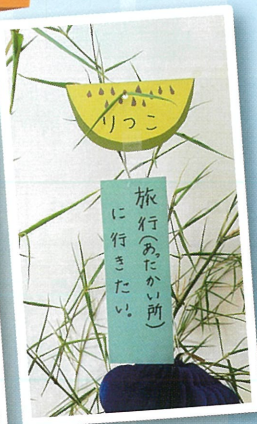 りつこ
旅行(あったかい所)
に行きたい。